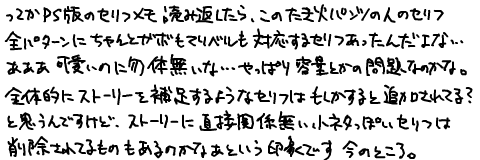 ってかPS版のセリフメモ読み返したら、このたき火パンツの人のセリフ
全パターンにちゃんとガボもマリベルも対応するセリフあったんだよな…
あああ 可愛いのに勿体無いな…やっぱり容量とかの問題なのかな。
全体的にストーリーを補足するようなセリフはもしかすると追加されてる？
と思うんですけど、ストーリーに直接関係無い小ネタっぽいセリフは
削除されてるものもあるのかなあという印象です 今のところ。